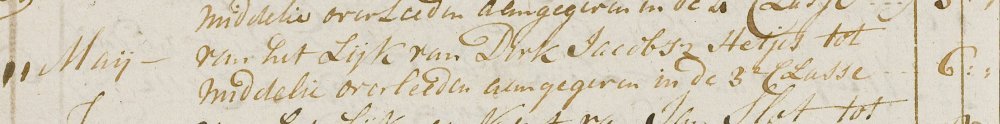 middelie overleeden aangegeven in de Classe
„ Maij — van het Lijk van Dirk Jacobsz Hetjes tot
middelie overleeden aangegeven in de 3e Classe — 6 : „
Lijk van Jan Slot tot